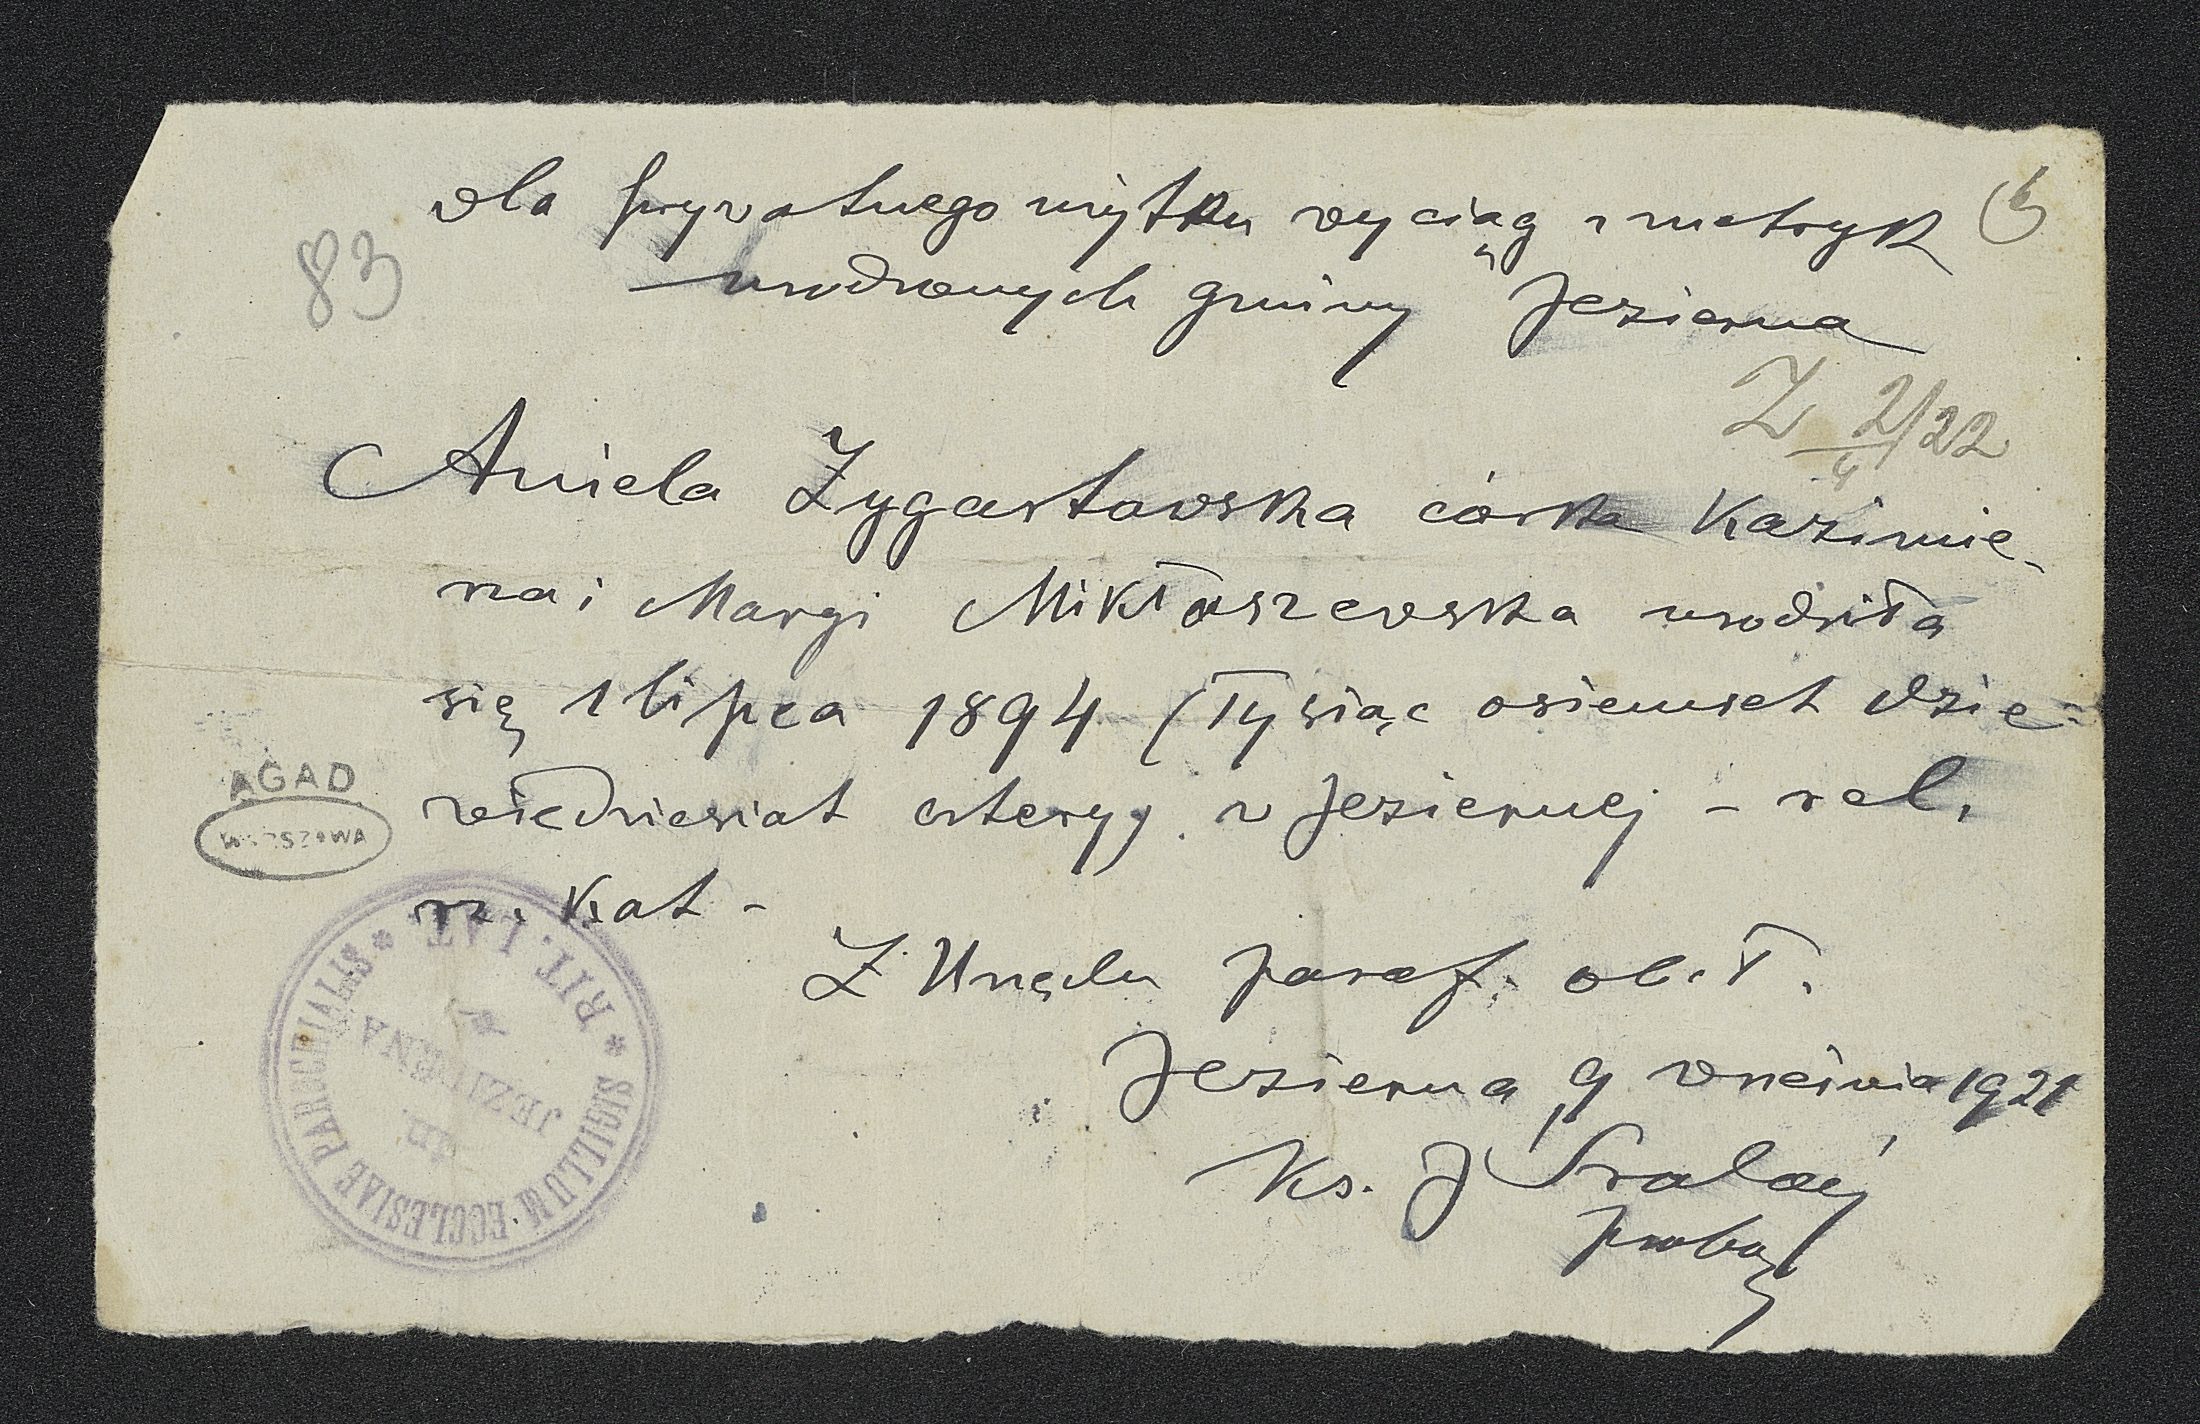 dla prywatnego użytku wyciąg z metryk
urodzonych gminy Jezierna
83
Z 2/4/22
Aniela Zygartowska córka Kazimie-
rza i Maryi Mikłaszewska urodziła
się 1 lipca 1894 (Tysiąc osiemset dzie-
więdziesiat cztery) w Jeziernej - rel.
rz. Kat -
Z Urzędu paraf. ob. ł.
Jezierna 9 września 1921
Ks. J
probo
AGAD
WARSZAWA
* SIGILLUM ECCLESIAE PAROCHIALIS * RIT. LAT.
in
JEZIERNA